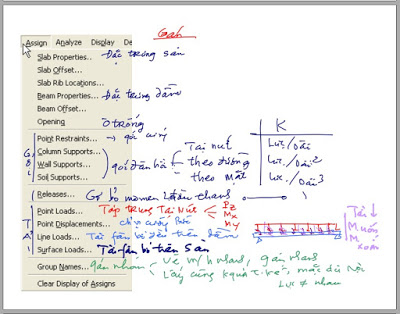 Gán
Assign Analyze Display De
Slab Properties... Đặc trưng sàn
Slab Offset...
Slab Rib Locations...
Beam Properties... Đặc trưng dầm
Beam Offset...
Opening Ô trống
Point Restraints... gối cứng
Column Supports...
Wall Supports... gối đàn hồi
Soil Supports...
Tại nút
theo đường
theo mặt
K
Lực/Dài
Lực/Dài²
Lực/Dài³
Releases... Gỡ bỏ momen đầu thanh
Point Loads... Tập trung Tại Nút
Pz
Mx
My
Point Displacements... chuyển vị
Line Loads... Tải phân bố trên dầm
Surface Loads... Tải phân bố trên Sàn
Tải
M uốn
M xoắn
Group Names... gán nhóm
Lấy cùng kquả t.kế, mặc dù nội
Lực ≠ nhau
Clear Display of Assigns